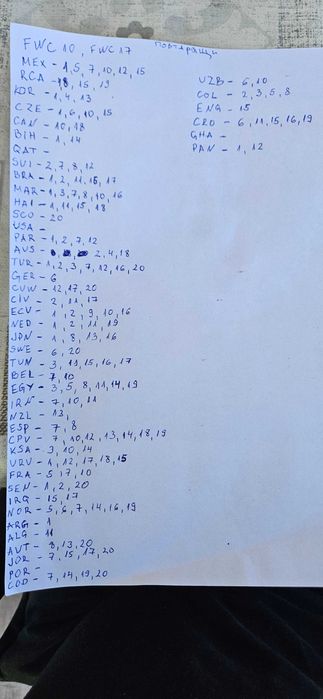 FWC 10, FWC 17 повтарящи
MEX - 1, 5, 7, 10, 12, 15
RCA - 8, 15, 19
KOR - 1, 4, 13
CZE - 1, 6, 10, 15
CAN - 10, 18
BIH - 1, 14
QAT -
SUI - 2, 7, 8, 12
BRA - 1, 2, 11, 15, 17
MAR - 1, 3, 7, 8, 10, 16
HAI - 1, 11, 15, 18
SCO - 20
USA -
PAR - 1, 2, 7, 12
AUS - 2, 4, 18
TUR - 1, 2, 3, 7, 12, 16, 20
GER - 6
CUW - 12, 17, 20
CIV - 2, 11, 17
ECV - 1, 2, 9, 10, 16
NED - 1, 2, 11, 19
JPN - 1, 8, 13, 16
SWE - 6, 20
TUN - 3, 11, 15, 16, 17
BEL - 7, 10
EGY - 3, 5, 8, 11, 14, 19
IRN - 7, 10, 11
NZL - 13,
ESP - 7, 8
CPV - 7, 10, 12, 13, 14, 18, 19
KSA - 9, 10, 14
URV - 1, 12, 17, 18, 15
FRA - 5, 17, 10
SEN - 1, 2, 20
IRQ - 15, 17
NOR - 5, 6, 7, 14, 16, 19
ARG - 1
ALG - 11
AUT - 8, 13, 20
JOR - 7, 15, 17, 20
POR -
COD - 7, 14, 19, 20
UZB - 6, 10
COL - 2, 3, 5, 8
ENG - 15
CRO - 6, 11, 15, 16, 19
GHA -
PAN - 1, 12